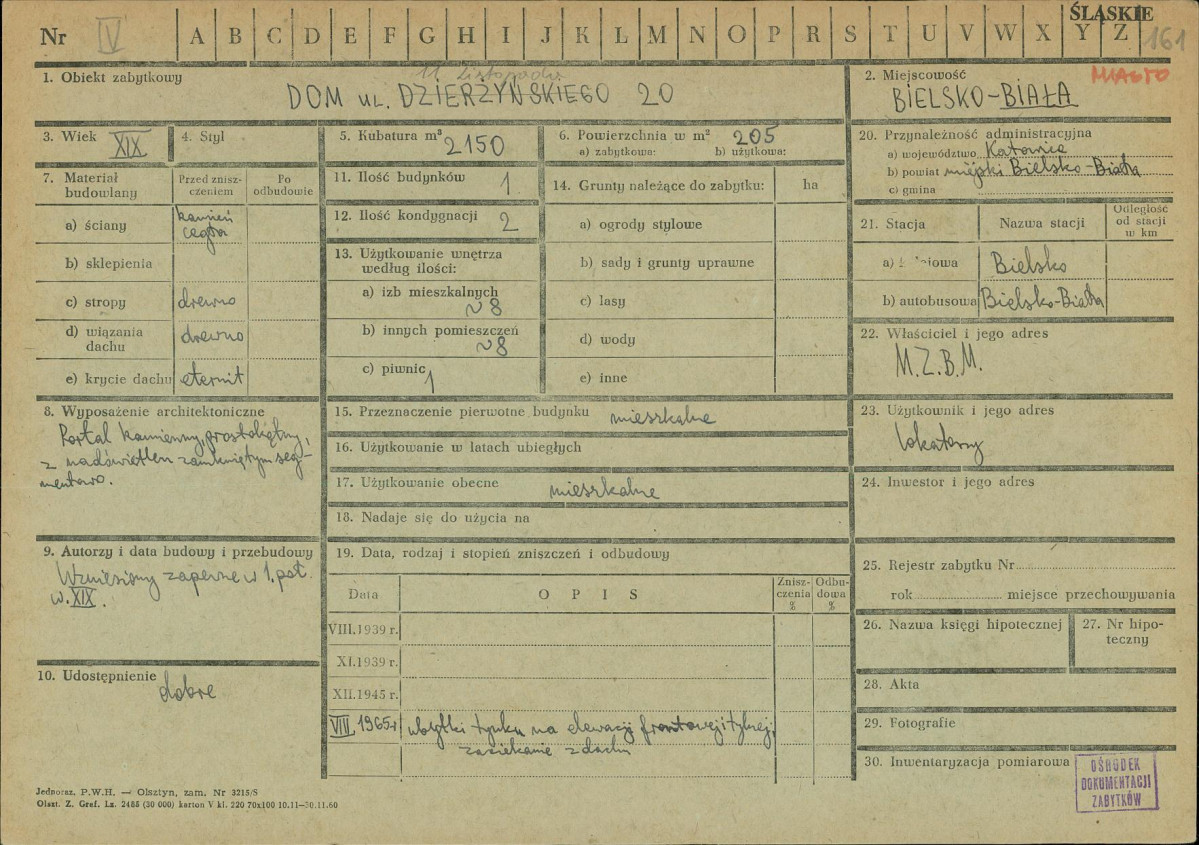 ŚLĄSKIE
Nr IV A B C D E F G H I J K L M N O P R S T U V W X Y Z 161
1. Obiekt zabytkowy
11 Listopada
DOM UL. DZIERŻYŃSKIEGO 20
2. Miejscowość MIASTO
BIELSKO-BIAŁA
3. Wiek XIX
4. Styl
5. Kubatura m³ 2150
6. Powierzchnia w m² 205
a) zabytkowa: b) użytkowa:
20. Przynależność administracyjna
a) województwo Katowice
b) powiat miejski Bielsko-Biała
c) gmina
7. Materiał budowlany
Przed znisz-
czeniem
Po
odbudowie
a) ściany kamień
cegła
b) sklepienia
c) stropy drewno
d) wiązania
dachu drewno
e) krycie dachu eternit
11. Ilość budynków 1
12. Ilość kondygnacji 2
13. Użytkowanie wnętrza
według ilości:
a) izb mieszkalnych
~8
b) innych pomieszczeń
~8
c) piwnic 1
14. Grunty należące do zabytku: ha
a) ogrody stylowe
b) sady i grunty uprawne
c) lasy
d) wody
e) inne
21. Stacja Nazwa stacji
Odległość
od stacji
w km
a) Bielsko
b) autobusowa Bielsko-Biała
22. Właściciel i jego adres
M.Z.B.M.
8. Wyposażenie architektoniczne
Portal kamienny, prostokątny,
z nadświetlem zamkniętym seg-
mentowo.
15. Przeznaczenie pierwotne budynku mieszkalne
16. Użytkowanie w latach ubiegłych
17. Użytkowanie obecne mieszkalne
18. Nadaje się do użycia na
23. Użytkownik i jego adres
lokatorzy
24. Inwestor i jego adres
9. Autorzy i data budowy i przebudowy
Wzniesiony zapewne w 1. poł.
w. XIX.
10. Udostępnienie
dobre
19. Data, rodzaj i stopień zniszczeń i odbudowy
Data OPIS
Znisz-
czenia
%
Odbu-
dowa
%
VIII.1939 r.
XI.1939 r.
XII.1945 r.
VIII 1965 r ubytki tynku na elewacji frontowej i tylnej,
zaciekanie z dachu
25. Rejestr zabytku Nr
rok miejsce przechowywania
26. Nazwa księgi hipotecznej
27. Nr hipo-
teczny
28. Akta
29. Fotografie
30. Inwentaryzacja pomiarowa
OŚRODEK
DOKUMENTACJI
ZABYTKÓW
Jednoraz. P.W.H. — Olsztyn, zam. Nr 3215/S
Olszt. Z. Graf. Lz. 2485 (30 000) karton V kl. 220 70x100 10.11—30.11.60